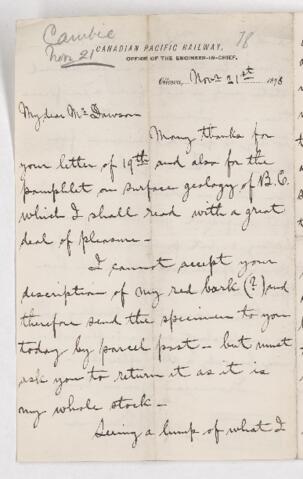 Cambie
Nov 21
78
CANADIAN PACIFIC RAILWAY,
OFFICE OF THE ENGINEER-IN-CHIEF.
Ottawa, Novr 21st 1878
My dear Mr Dawson
Many thanks for
your letter of 19th and also for the
pamphlet on surface geology of B.C.
which I shall read with a great
deal of pleasure -
I cannot accept your
description of my red bark (?) and
therefore send the specimen to you
today by parcel post - but must
ask you to return it as it is
my whole stock -
Seeing a lump of what I